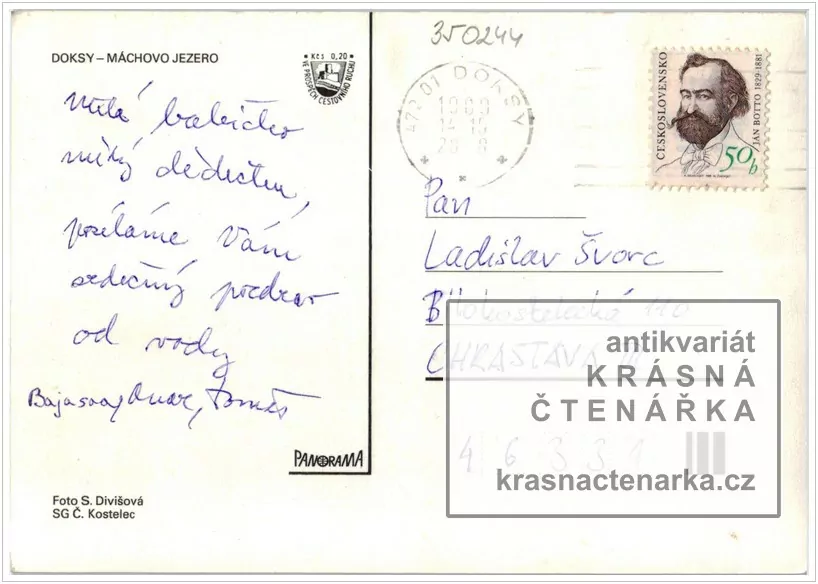 350244
DOKSY – MÁCHOVO JEZERO
Kčs 0,20
VE PROSPĚCH CESTOVNÍHO RUCHU
472 01 DOKSY
ČESKOSLOVENSKO
JÁN BOTTO 1829-1881
50h
Milá babičko
milý dědečku,
posíláme Vám
srdečný pozdrav
od vody
Tomáš
PANORAMA
Foto S. Divišová
SG Č. Kostelec
Pan
Ladislav Švorc
Bělokostelecká 110
CHRASTAVA III
46331
antikvariát
KRÁSNÁ
ČTENÁŘKA
krasnactenarka.cz